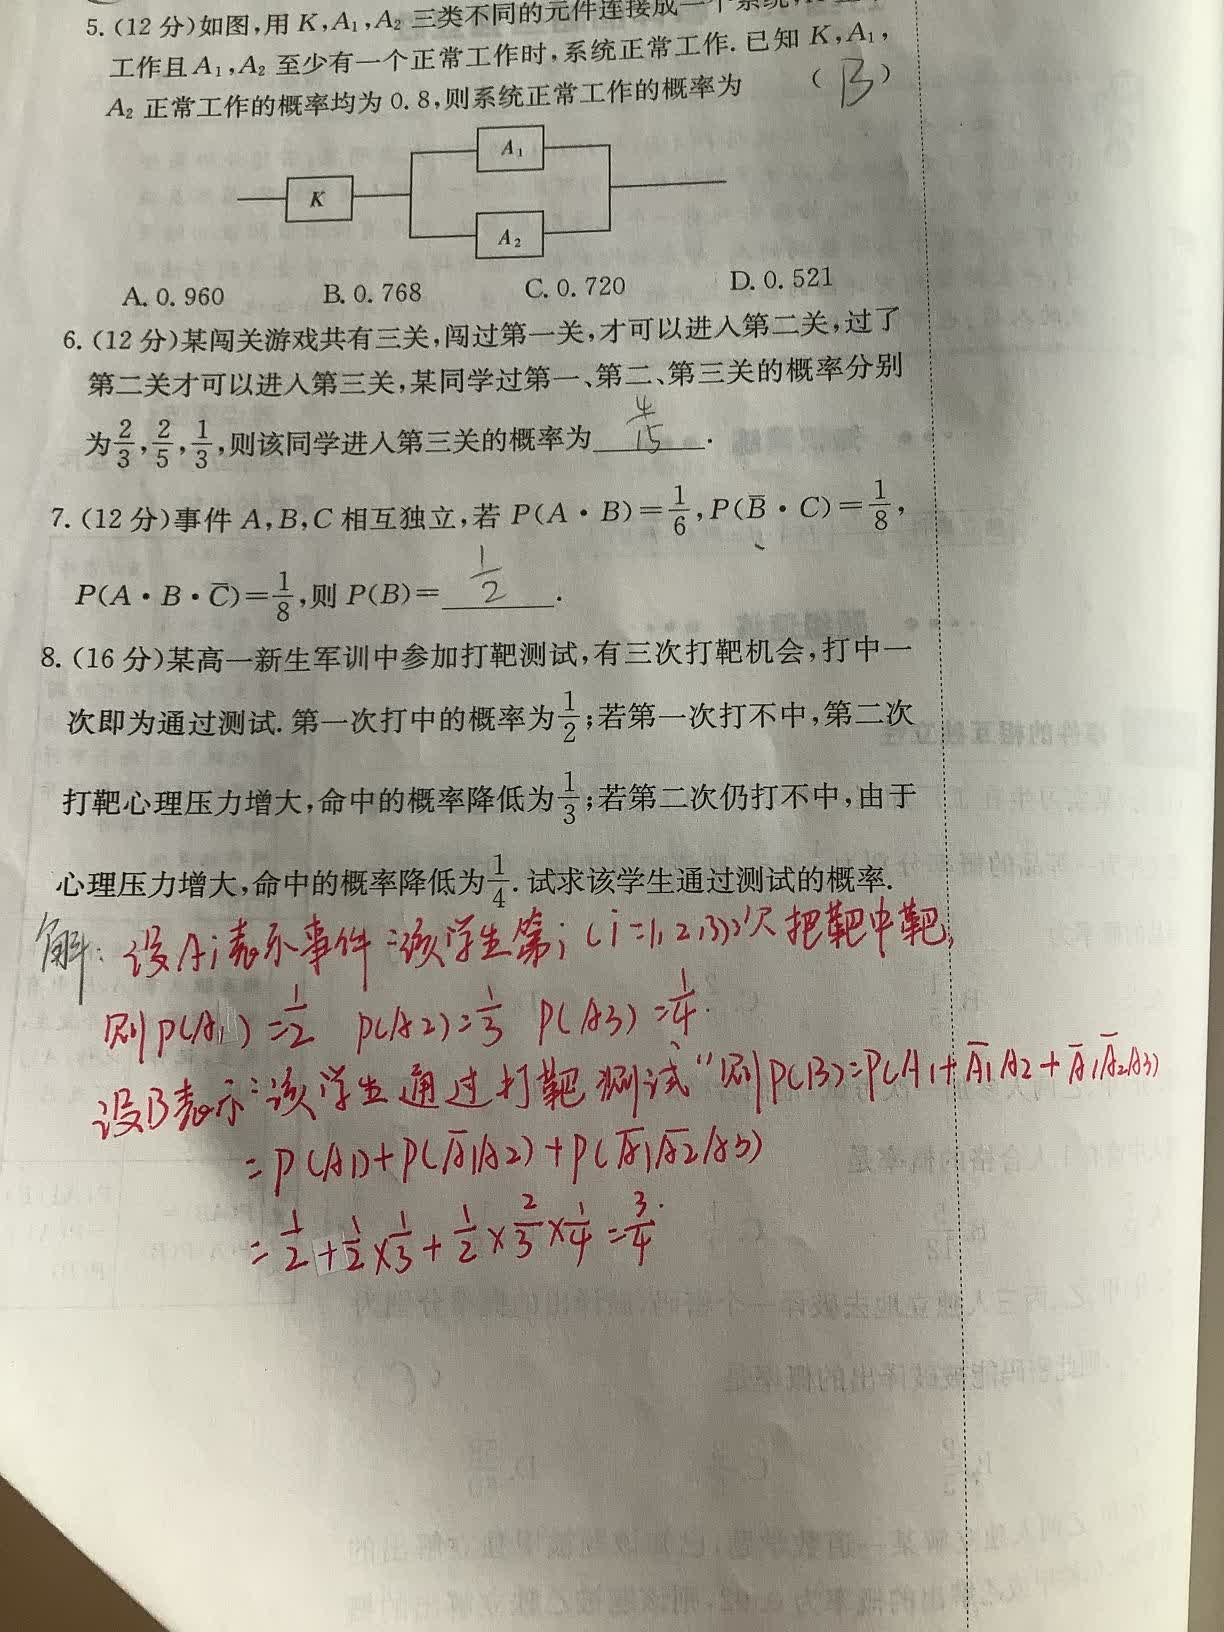 5. (12 分)如图,用 K,A₁,A₂ 三类不同的元件连接成一个系统,
工作且 A₁,A₂ 至少有一个正常工作时,系统正常工作. 已知 K,A₁,
A₂ 正常工作的概率均为 0.8,则系统正常工作的概率为 ( B )
A₁
K
A₂
A. 0.960 B. 0.768 C. 0.720 D. 0.521
6. (12 分)某闯关游戏共有三关,闯过第一关,才可以进入第二关,过了
第二关才可以进入第三关,某同学过第一、第二、第三关的概率分别
为 2/3, 2/5, 1/3,则该同学进入第三关的概率为 4/15 .
7. (12 分)事件 A,B,C 相互独立,若 P(A·B)=1/6,P(B̅·C)=1/8,
P(A·B·C̅)=1/8,则 P(B)= 1/2 .
8. (16 分)某高一新生军训中参加打靶测试,有三次打靶机会,打中一
次即为通过测试. 第一次打中的概率为 1/2;若第一次打不中,第二次
打靶心理压力增大,命中的概率降低为 1/3;若第二次仍打不中,由于
心理压力增大,命中的概率降低为 1/4. 试求该学生通过测试的概率.
解: 设Ai表示事件"该学生第i(i=1,2,3)次把靶中靶,
则P(A₁)=1/2 P(A2)=1/3 P(A3)=1/4.
设B表示"该学生通过打靶测试"则P(B)=P(A1+A̅1A2+A̅1A̅2A3)
=P(A1)+P(A̅1A2)+P(A̅1A̅2A3)
=1/2+1/2×1/3+1/2×2/3×1/4=3/4.